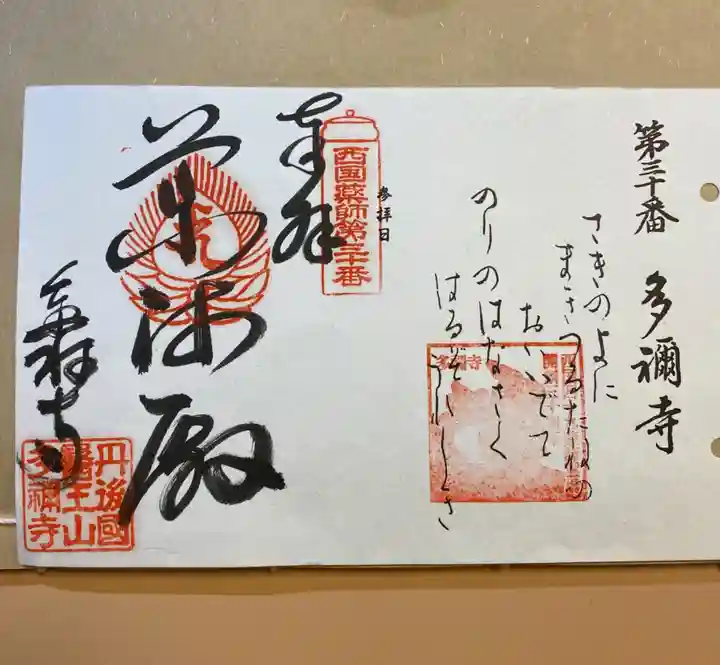 第三十番 多禰寺
さきのよに
まきつるたねの
おいいでて
のりのはなさく
はるぞうれしさ
参拝日
西国薬師第三十番
奉拝
薬師殿
多禰寺
丹後國
醫王山
多禰寺